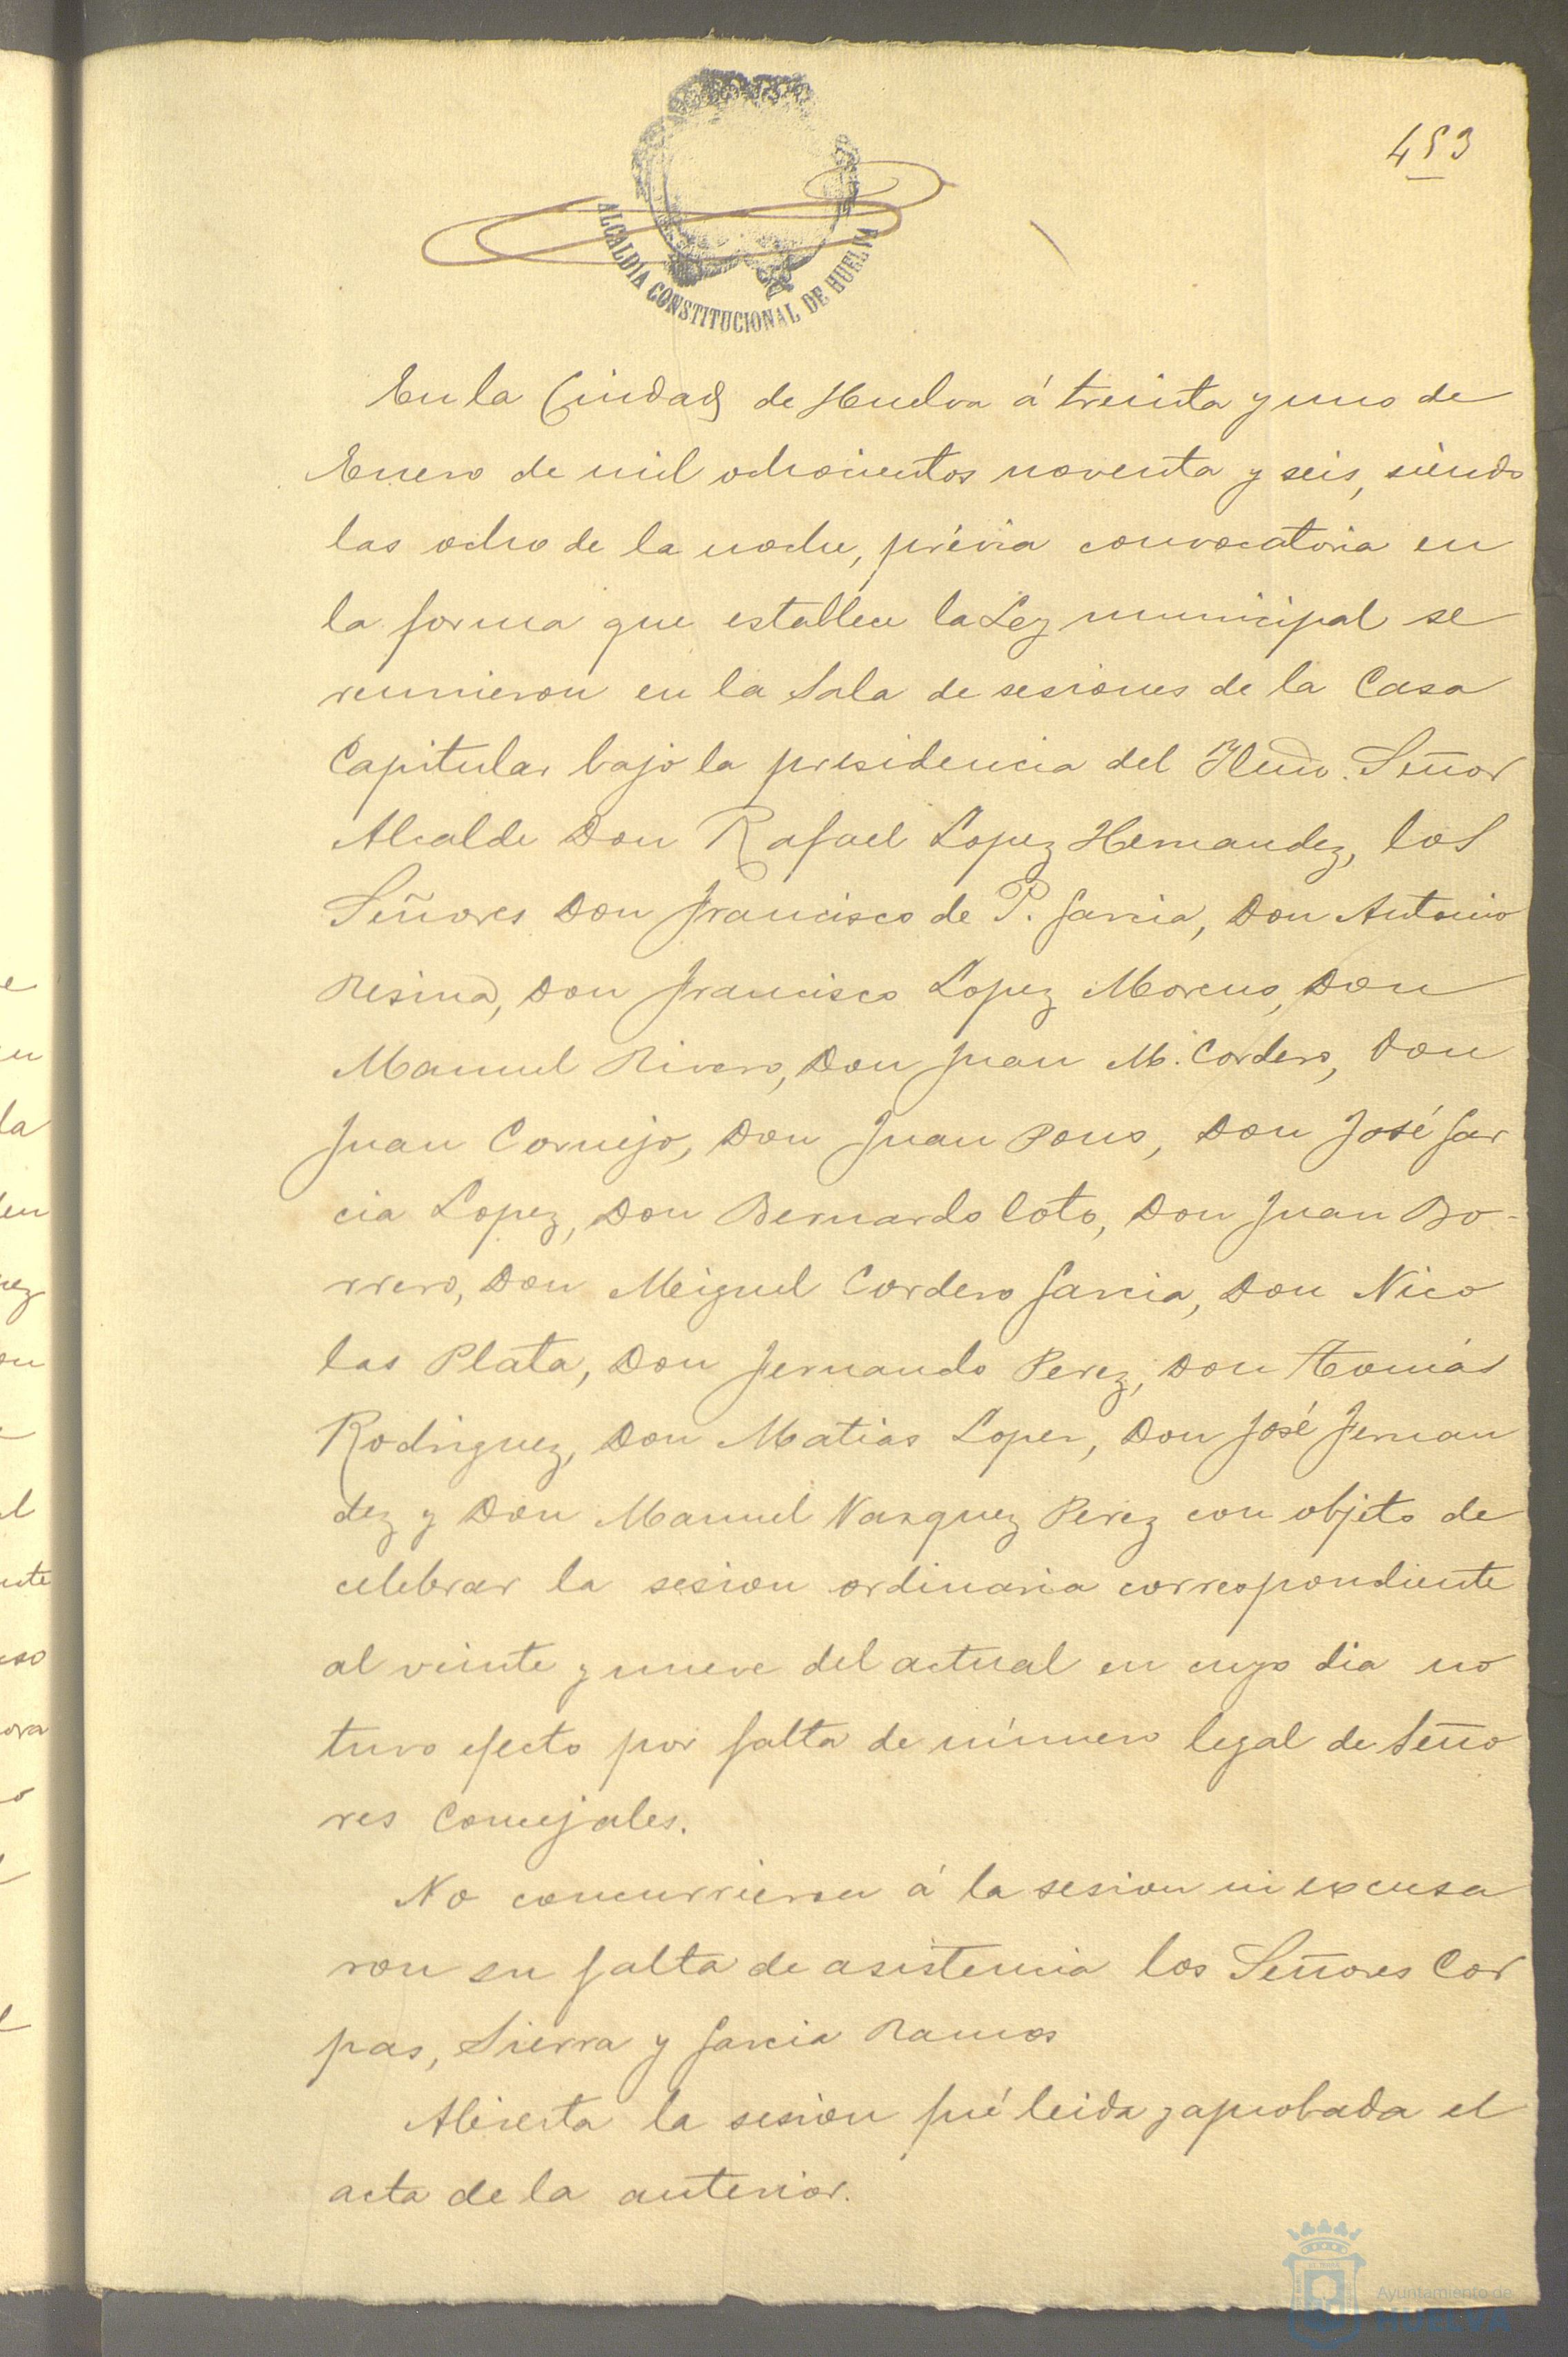 453
ALCALDÍA CONSTITUCIONAL DE HUELVA
En la Ciudad de Huelva á treinta y uno de
Enero de mil ochocientos noventa y seis, siendo
las ocho de la noche, prévia convocatoria en
la forma que establece la Ley municipal se
reunieron en la Sala de sesiones de la Casa
Capitular bajo la presidencia del Iltmo. Señor
Alcalde Don Rafael Lopez Hernandez, los
Señores Don Francisco de P. Garcia, Don Antonio
Resina, Don Francisco Lopez Moreno, Don
Manuel Rivero, Don Juan M. Cordero, Don
Juan Cornejo, Don Juan Pons, Don José Gar
cia Lopez, Don Bernardo Coto, Don Juan Bo-
rrero, Don Miguel Cordero Garcia, Don Nico
las Plata, Don Fernando Perez, Don Tomás
Rodriguez, Don Matias Lopez, Don José Fernan
dez y Don Manuel Vazquez Perez con objeto de
celebrar la sesion ordinaria correspondiente
al veinte y nueve del actual en cuyo dia no
tuvo efecto por falta de número legal de Seño
res Concejales.
No concurrieron á la sesion ni excusa
ron su falta de asistencia los Señores Cor
pas, Sierra y Garcia Ramos
Abierta la sesion fué leida y aprobada el
acta de la anterior.
Ayuntamiento de
HUELVA